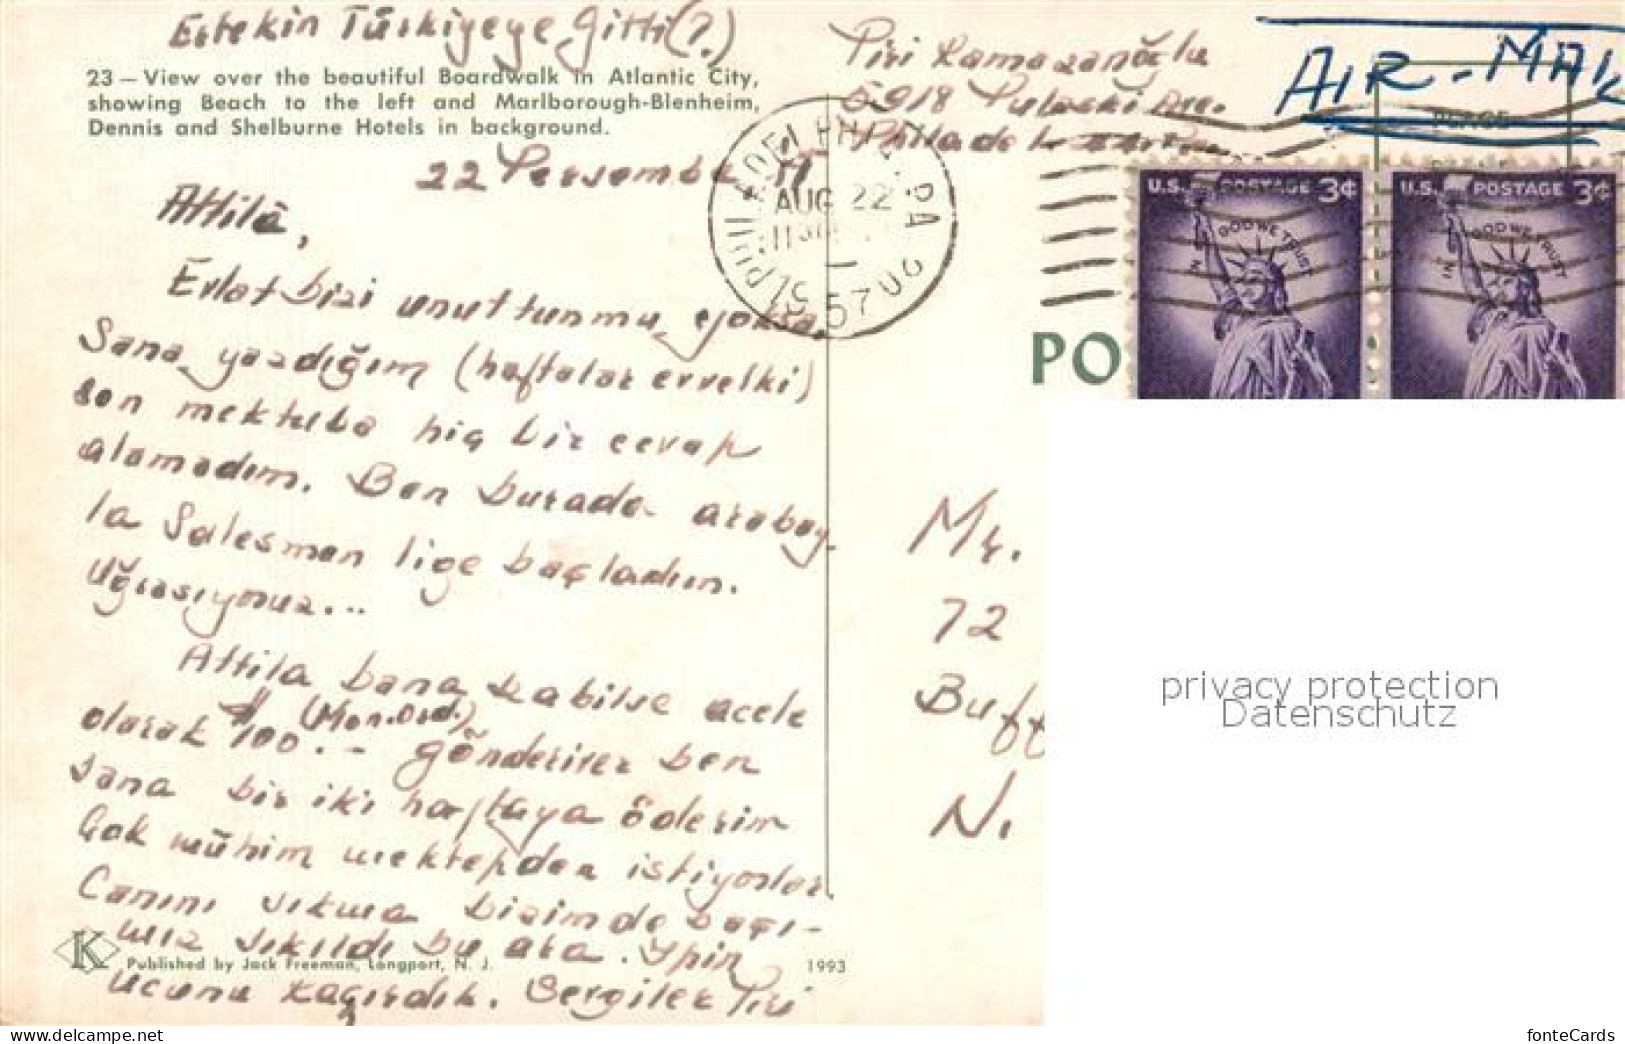 Ertekin Türkiyeye Gitti(?.)
23 — View over the beautiful Boardwalk in Atlantic City,
showing Beach to the left and Marlborough-Blenheim,
Dennis and Shelburne Hotels in background.
22 Persembe 57
Attilâ,
Evlat bizi unuttunmu, yoksa,
Sana yazdığım (haftalar evvelki)
son mektuba hiç bir cevap
alamadım. Ben burada arabay-
la Salesman liğe başladım.
Uğrasıyoruz...
Attila bana kabilse acele
olarak $100.- (Mon. Ord.) gönderirsen ben
sana bir iki haftaya öderim
Çok mühim mektepden istiyorlar
Canını sıkma bizimde başı-
mız sıkıldı bu ara. Ipin
ucunu kaçırdık. Sevgiler Piri
K
Published by Jack Freeman, Longport, N. J.
1993
Piri Ramazanoğlu
5918 Pulaski Ave.
Philadel
AIR-MAIL
PLACE
PHILADELPHIA, PA
AUG 22
1957
U.S. POSTAGE 3¢
IN GOD WE TRUST
U.S. POSTAGE 3¢
IN GOD WE TRUST
PO
Mr.
72
Buff
N.
privacy protection
Datenschutz
www.delcampe.net
fonteCards